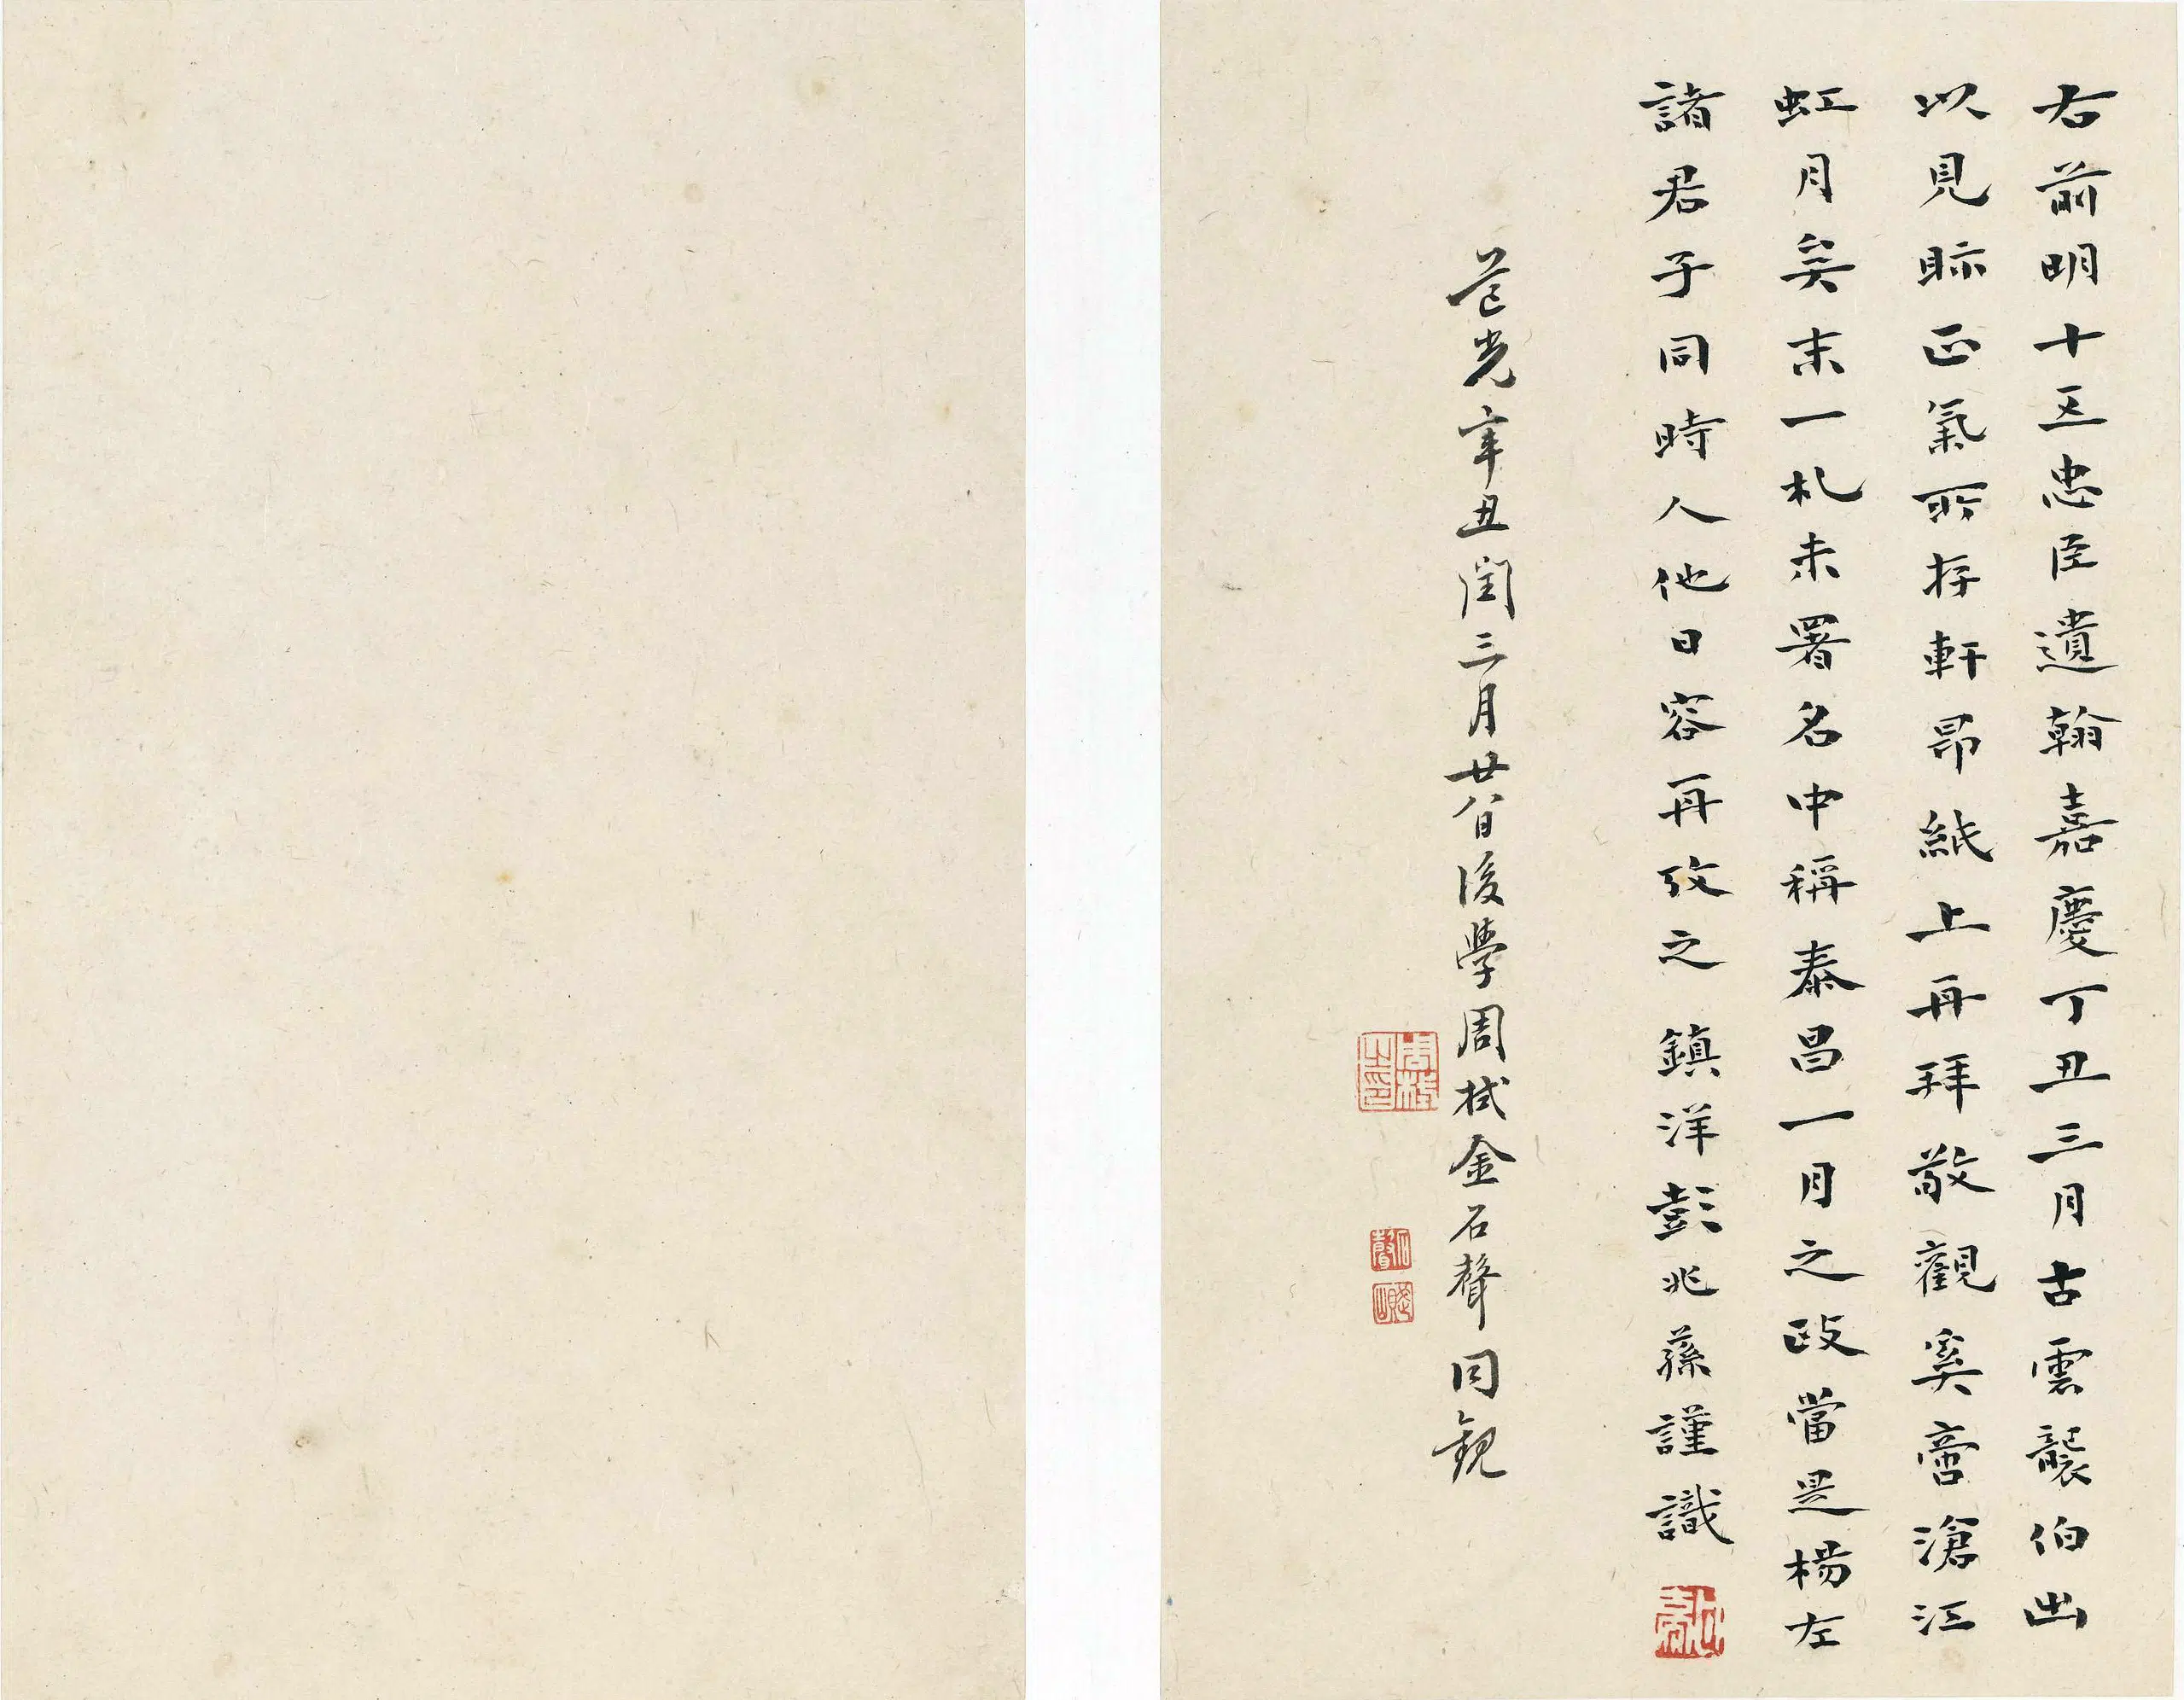 右前明十五忠臣遺翰嘉慶丁丑三月古雲襲伯出
以見眎正氣所存軒昂紙上再拜敬觀奚啻滄江
虹月矣末一札未署名中稱泰昌一月之政當是楊左
諸君子同時人他日容再攷之 鎮洋彭兆蓀謹識
道光辛丑閏三月廿八日後學周栻金石聲同觀
周栻之印
石聲